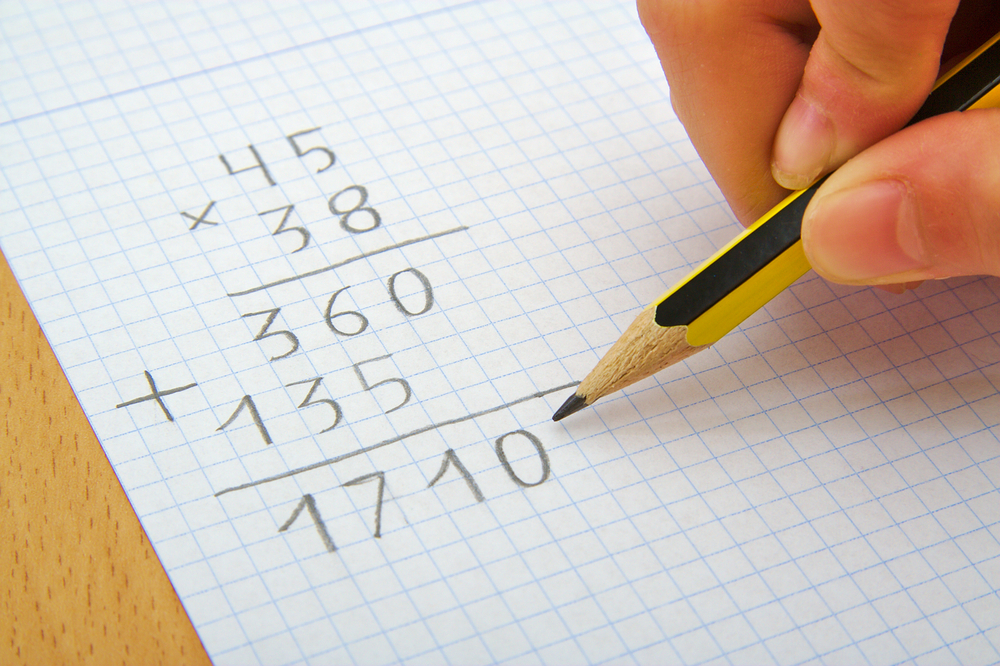 45
× 38
360
+ 135
1710